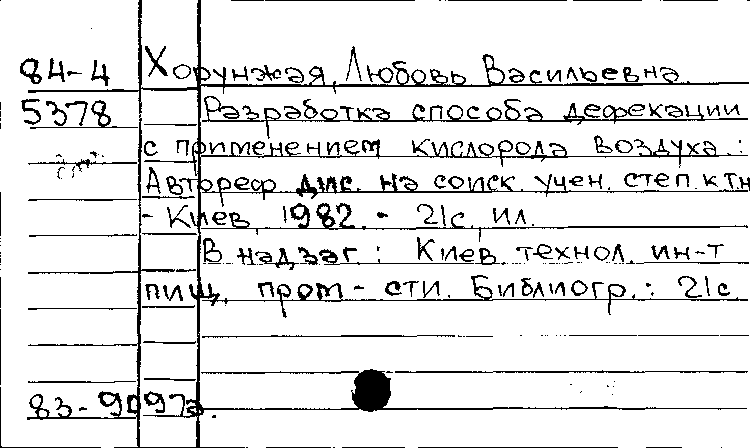 84-4 Хорунжая, Любовь Васильевна.
5378 Разработка способа дефекации
с применением кислорода воздуха :
Автореф. дис. на соиск. учен. степ. ктн
- Киев, 1982. - 21с., ил.
В надзаг.: Киев. технол. ин-т
пищ. пром-сти. Библиогр.: 21с.
83-9097а.